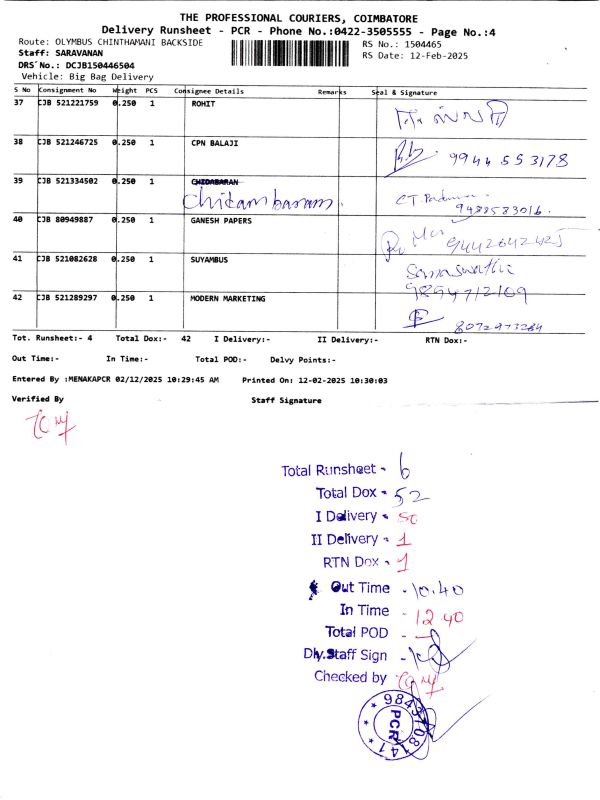 THE PROFESSIONAL COURIERS, COIMBATORE
Delivery Runsheet - PCR - Phone No.:0422-3505555 - Page No.:4
Route: OLYMBUS CHINTHAMANI BACKSIDE RS No.: 1504465
Staff: SARAVANAN RS Date: 12-Feb-2025
DRS No.: DCJB150446504
Vehicle: Big Bag Delivery
S No Consignment No Weight PCS Consignee Details Remarks Seal & Signature
37 CJB 521221759 0.250 1 ROHIT
38 CJB 521246725 0.250 1 CPN BALAJI 9944 553178
39 CJB 521334502 0.250 1 CHIDABARAN
Chidambaram. 9488583016.
40 CJB 80949887 0.250 1 GANESH PAPERS 9442642425
41 CJB 521082628 0.250 1 SUYAMBUS Saraswathi
9854712109
42 CJB 521289297 0.250 1 MODERN MARKETING 8072973284
Tot. Runsheet:- 4 Total Dox:- 42 I Delivery:- II Delivery:- RTN Dox:-
Out Time:- In Time:- Total POD:- Delvy Points:-
Entered By :MENAKAPCR 02/12/2025 10:29:45 AM Printed On: 12-02-2025 10:30:03
Verified By Staff Signature
Total Runsheet - 6
Total Dox - 52
I Delivery - 50
II Delivery - 1
RTN Dox - 1
Out Time - 10.40
In Time - 12.40
Total POD -
Dly.Staff Sign -
Checked by
PCR